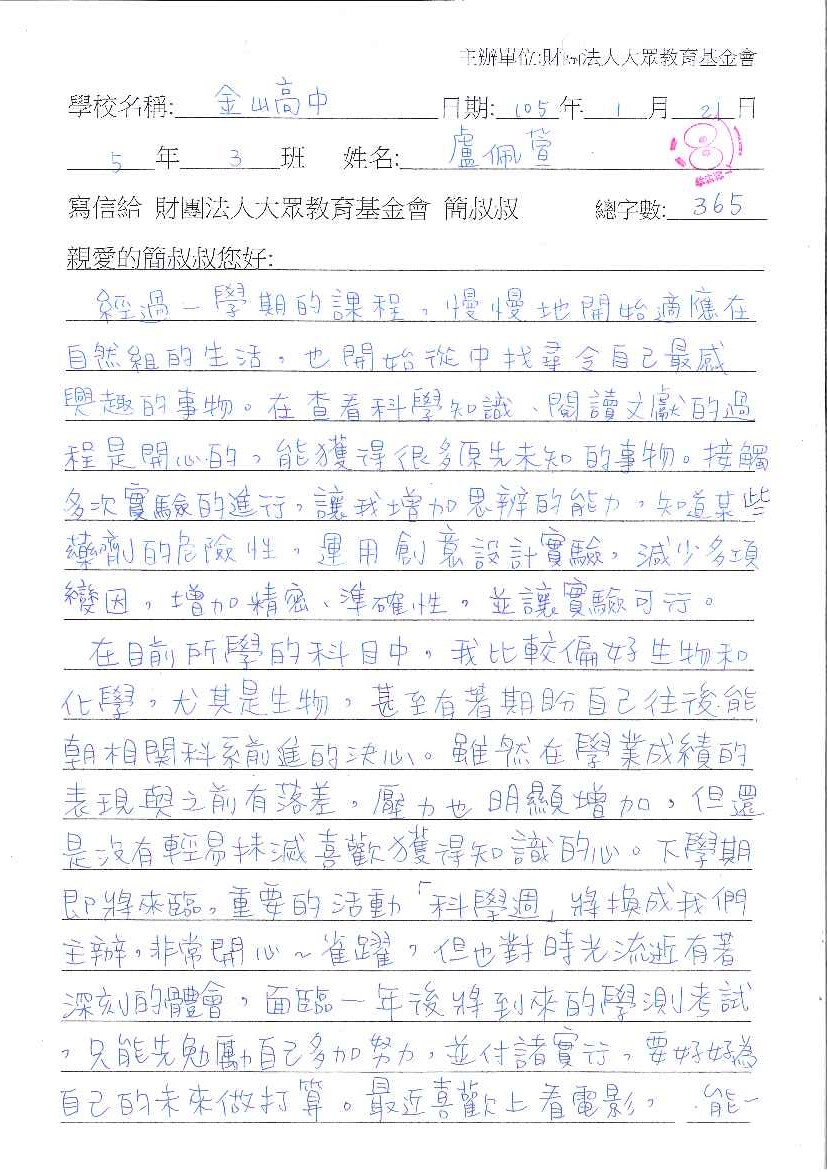 主辦單位:財團法人大眾教育基金會
學校名稱: 金山高中 日期: 105 年 1 月 21 日
5 年 3 班 姓名: 盧佩萱
寫信給 財團法人大眾教育基金會 簡叔叔 總字數: 365
親愛的簡叔叔您好:
經過一學期的課程，慢慢地開始適應在
自然組的生活，也開始從中找尋令自己最感
興趣的事物。在查看科學知識、閱讀文獻的過
程是開心的，能獲得很多原先未知的事物。接觸
多次實驗的進行，讓我增加思辨的能力，知道某些
藥劑的危險性，運用創意設計實驗，減少多項
變因，增加精密、準確性，並讓實驗可行。
在目前所學的科目中，我比較偏好生物和
化學，尤其是生物，甚至有著期盼自己往後能
朝相關科系前進的決心。雖然在學業成績的
表現與之前有落差，壓力也明顯增加，但還
是沒有輕易抹滅喜歡獲得知識的心。下學期
即將來臨，重要的活動「科學週」將換成我們
主辦，非常開心~雀躍，但也對時光流逝有著
深刻的體會，面臨一年後將到來的學測考試
，只能先勉勵自己多加努力，並付諸實行，要好好為
自己的未來做打算。最近喜歡上看電影， 能一